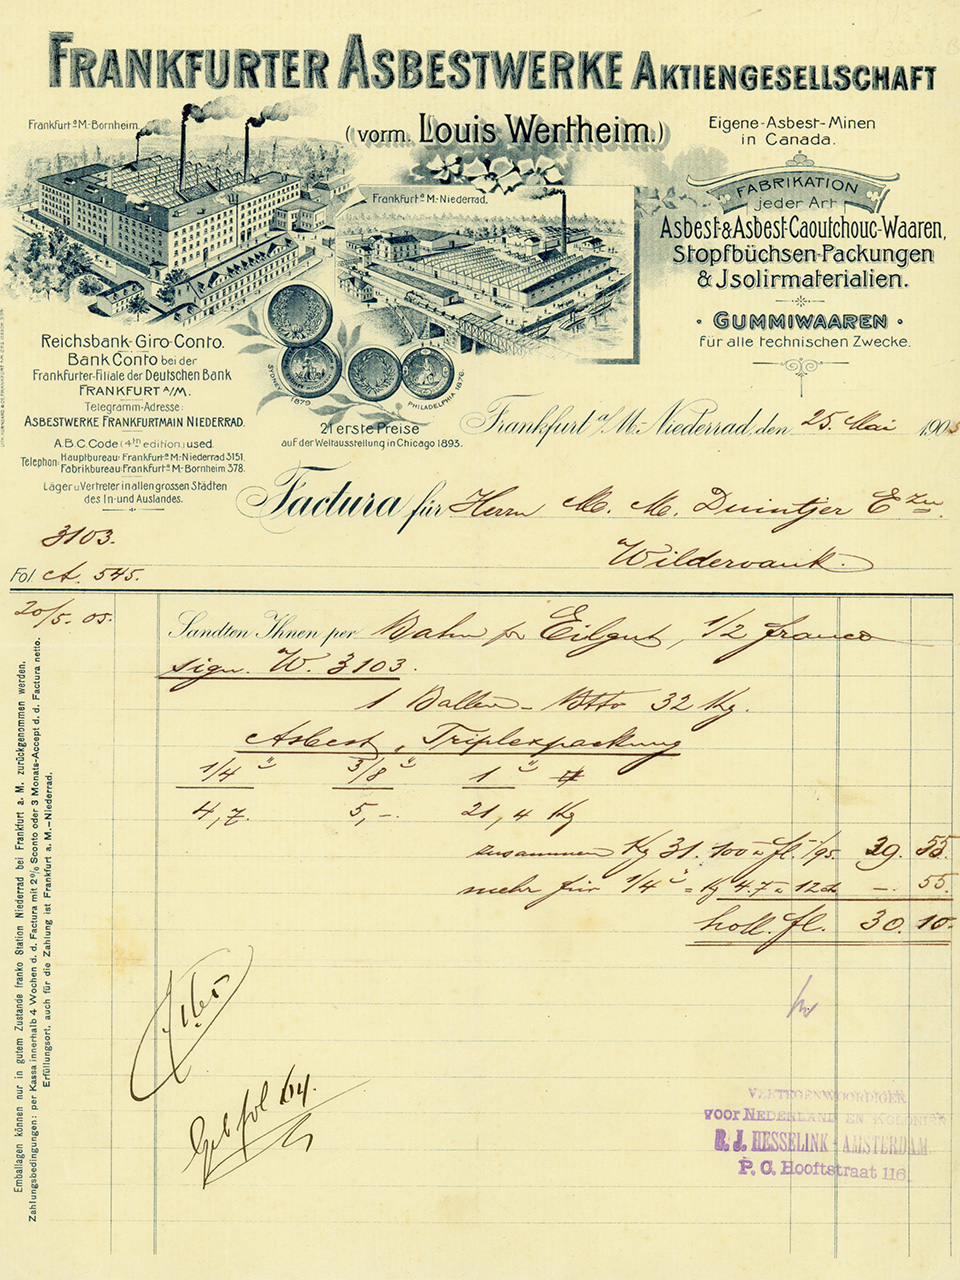 FRANKFURTER ASBESTWERKE AKTIENGESELLSCHAFT
(vorm. Louis Wertheim.)
Frankfurt a/M.-Bornheim.
Frankfurt a/M.-Niederrad.
Eigene-Asbest-Minen
in Canada.
FABRIKATION
jeder Art
Asbest-&Asbest-Caoutchouc-Waaren,
Stopfbüchsen-Packungen
& Jsolirmaterialien.
· GUMMIWAAREN ·
für alle technischen Zwecke.
Reichsbank-Giro-Conto.
BANK CONTO bei der
Frankfurter-Filiale der Deutschen Bank
FRANKFURT A/M.
Telegramm-Adresse:
ASBESTWERKE FRANKFURTMAIN NIEDERRAD.
A.B.C. Code (4th edition) used.
Telephon: Hauptbureau: Frankfurt a. M.-Niederrad 3151.
Fabrikbureau: Frankfurt a. M.-Bornheim 378.
Läger u. Vertreter in allen grossen Städten
des In- und Auslandes.
SYDNEY 1879
PHILADELPHIA 1876.
21 erste Preise
auf der Weltausstellung in Chicago 1893.
Frankfurt a/M.-Niederrad, den 25. Mai 1905
Factura für Herrn M. M. Duintjer Ezn.
Wildervank.
3103.
Fol A. 545.
20/5. 05.
Sandten Ihnen per Bahn pr Eilgut, 1/2 franco
sign. W. 3103.
1 Ballen - Btto 32 Kg.
Asbest „ Triplexpackung
1/4 " 3/8 " 1 "
4,7. 5,-. 21,4 Kg
zusammen Kg 31.100 a fl. -/95. 29. 55.
mehr für 1/4 " = Kg 4.7 a 12 ct -. 55.
holl. fl. 30. 10.
Emballagen können nur in gutem Zustande franko Station Niederrad bei Frankfurt a. M. zurückgenommen werden.
Zahlungsbedingungen: per Kassa innerhalb 4 Wochen d. d. Factura mit 2% Sconto oder 3 Monats-Accept d. d. Factura netto.
Erfüllungsort, auch für die Zahlung ist Frankfurt a. M.-Niederrad.
VERTEGENWOORDIGER
VOOR NEDERLAND EN KOLONIËN
R. J. HESSELINK - AMSTERDAM
P. C. Hooftstraat 116.